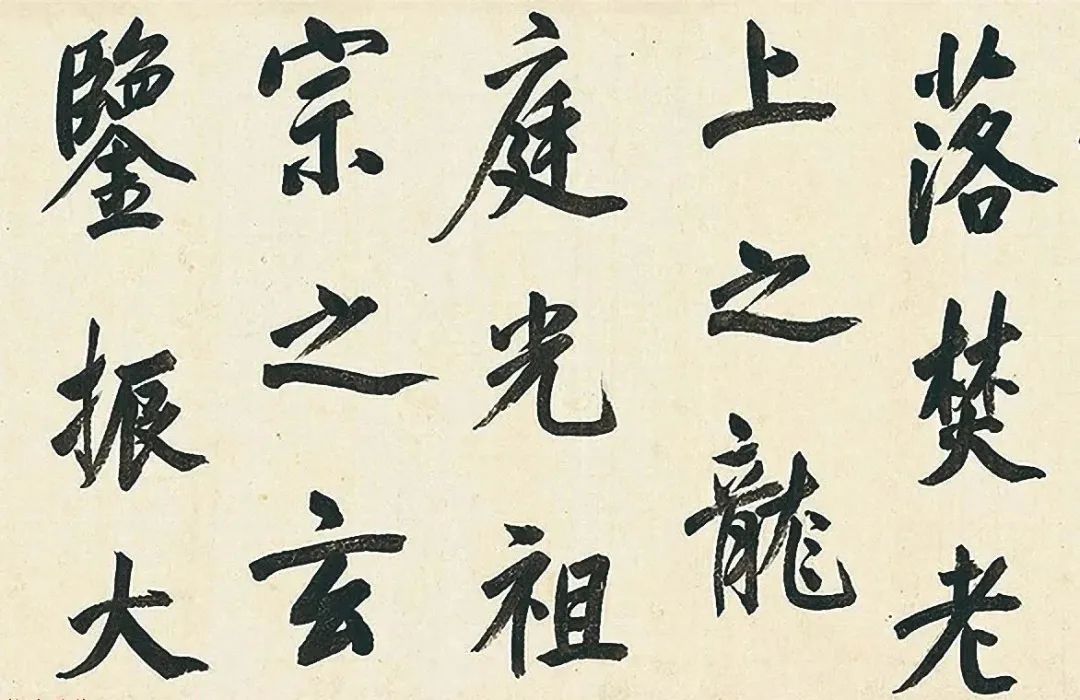 落焚老
上之龍
庭光祖
宗之玄
鑒振大